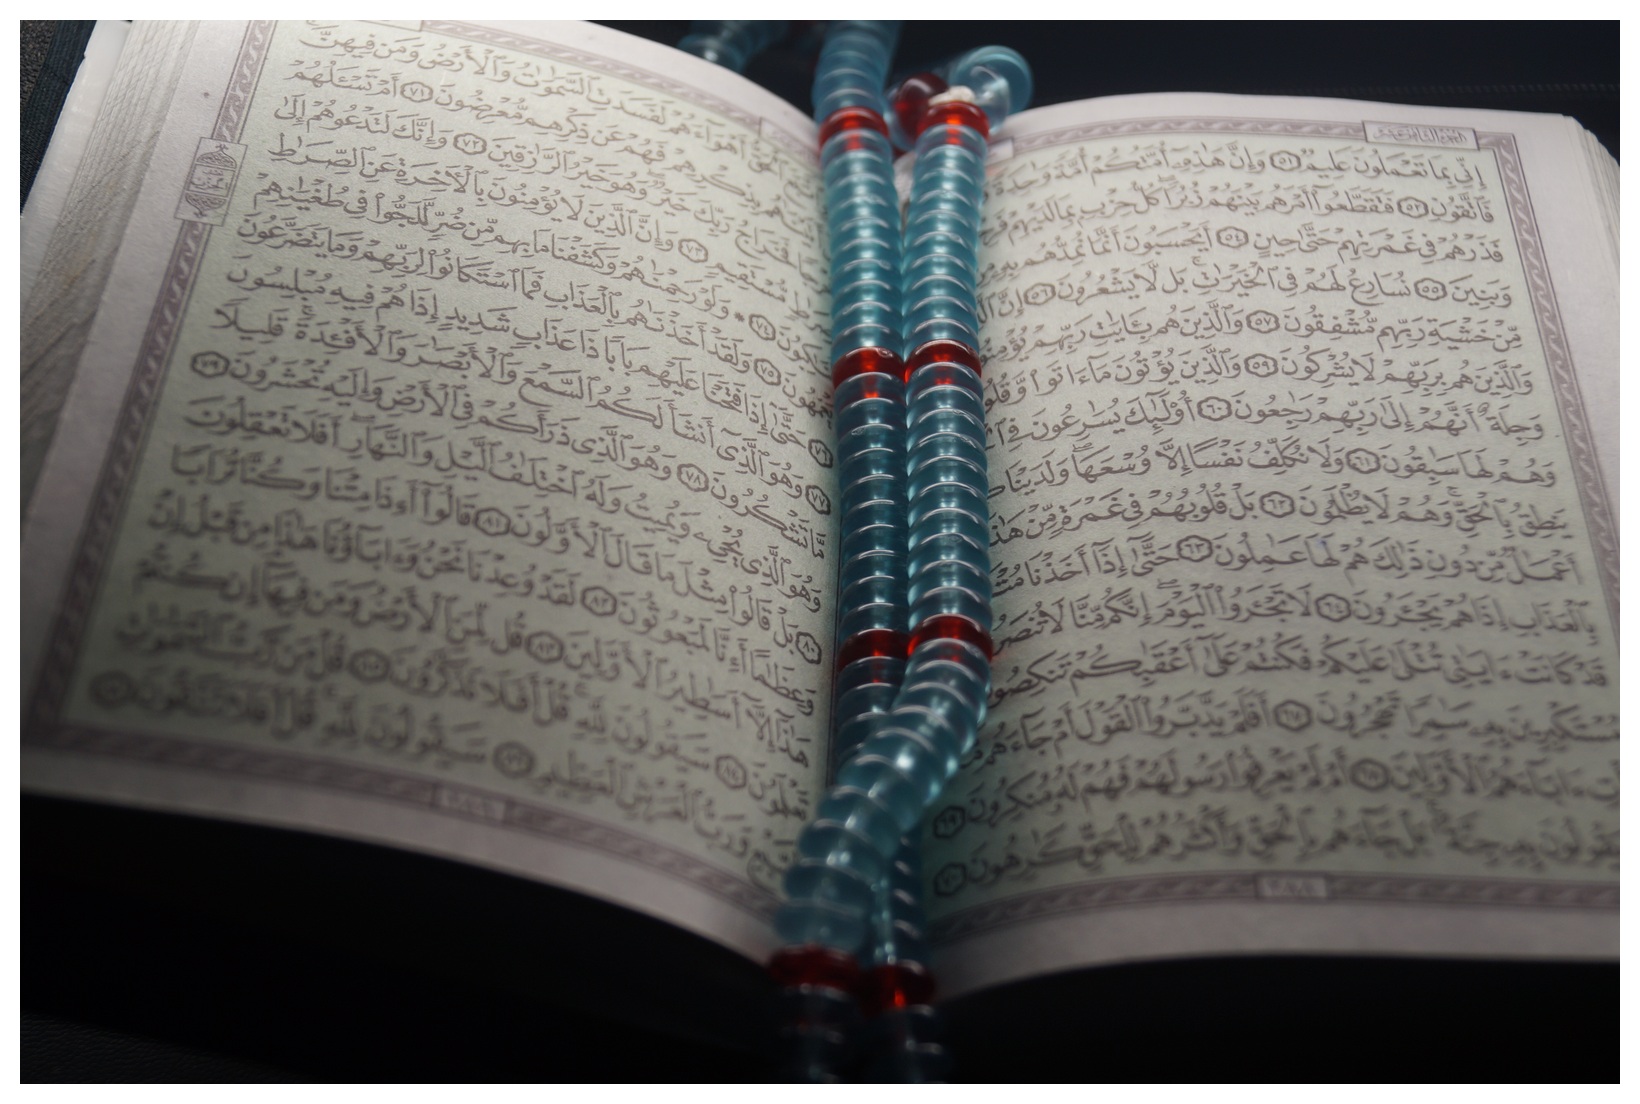 الجزء الثامن عشر
إِنِّي بِمَا تَعْمَلُونَ عَلِيمٌ ٥١ وَإِنَّ هَٰذِهِۦٓ أُمَّتُكُمْ أُمَّةً وَٰحِدَةً
فَٱتَّقُونِ ٥٢ فَتَقَطَّعُوٓا۟ أَمْرَهُم بَيْنَهُمْ زُبُرًا ۖ كُلُّ حِزْبٍۭ بِمَا لَدَيْهِمْ
فَذَرْهُمْ فِى غَمْرَتِهِمْ حَتَّىٰ حِينٍ ٥٤ أَيَحْسَبُونَ أَنَّمَا نُمِدُّهُم بِهِۦ
وَبَنِينَ ٥٥ نُسَارِعُ لَهُمْ فِى ٱلْخَيْرَٰتِ ۚ بَل لَّا يَشْعُرُونَ ٥٦ إِنَّ
مِّنْ خَشْيَةِ رَبِّهِم مُّشْفِقُونَ ٥٧ وَٱلَّذِينَ هُم بِـَٔايَٰتِ رَبِّهِمْ
وَٱلَّذِينَ هُم بِرَبِّهِمْ لَا يُشْرِكُونَ ٥٩ وَٱلَّذِينَ يُؤْتُونَ مَآ ءَاتَوا۟
وَجِلَةٌ أَنَّهُمْ إِلَىٰ رَبِّهِمْ رَٰجِعُونَ ٦٠ أُو۟لَٰٓئِكَ يُسَٰرِعُونَ فِى
وَهُمْ لَهَا سَٰبِقُونَ ٦١ وَلَا نُكَلِّفُ نَفْسًا إِلَّا وُسْعَهَا ۖ وَلَدَيْنَا
يَنطِقُ بِٱلْحَقِّ ۚ وَهُمْ لَا يُظْلَمُونَ ٦٢ بَلْ قُلُوبُهُمْ فِى غَمْرَةٍ مِّنْ
أَعْمَٰلٌ مِّن دُونِ ذَٰلِكَ هُمْ لَهَا عَٰمِلُونَ ٦٣ حَتَّىٰٓ إِذَآ أَخَذْنَا
بِٱلْعَذَابِ إِذَا هُمْ يَجْـَٔرُونَ ٦٤ لَا تَجْـَٔرُوا۟ ٱلْيَوْمَ ۖ إِنَّكُم مِّنَّا لَا
قَدْ كَانَتْ ءَايَٰتِى تُتْلَىٰ عَلَيْكُمْ فَكُنتُمْ عَلَىٰٓ أَعْقَٰبِكُمْ تَنكِصُونَ
مُسْتَكْبِرِينَ بِهِۦ سَٰمِرًا تَهْجُرُونَ ٦٧ أَفَلَمْ يَدَّبَّرُوا۟ ٱلْقَوْلَ أَمْ جَآءَهُم
ءَابَآءَهُمُ ٱلْأَوَّلِينَ ٦٨ أَمْ لَمْ يَعْرِفُوا۟ رَسُولَهُمْ فَهُمْ لَهُۥ مُنكِرُونَ ٦٩
يَقُولُونَ بِهِۦ جِنَّةٌۢ ۚ بَلْ جَآءَهُم بِٱلْحَقِّ وَأَكْثَرُهُمْ لِلْحَقِّ كَٰرِهُونَ ٧٠
ٱلْحَقُّ أَهْوَآءَهُمْ لَفَسَدَتِ ٱلسَّمَٰوَٰتُ وَٱلْأَرْضُ وَمَن فِيهِنَّ
بِذِكْرِهِمْ فَهُمْ عَن ذِكْرِهِم مُّعْرِضُونَ ٧١ أَمْ تَسْـَٔلُهُمْ
فَخَرَاجُ رَبِّكَ خَيْرٌ ۖ وَهُوَ خَيْرُ ٱلرَّٰزِقِينَ ٧٢ وَإِنَّكَ لَتَدْعُوهُمْ إِلَىٰ
مُّسْتَقِيمٍ ٧٣ وَإِنَّ ٱلَّذِينَ لَا يُؤْمِنُونَ بِٱلْـَٔاخِرَةِ عَنِ ٱلصِّرَٰطِ
٧٤ ۞ وَلَوْ رَحِمْنَٰهُمْ وَكَشَفْنَا مَا بِهِم مِّن ضُرٍّ لَّلَجُّوا۟ فِى طُغْيَٰنِهِمْ
يَعْمَهُونَ ٧٥ وَلَقَدْ أَخَذْنَٰهُم بِٱلْعَذَابِ فَمَا ٱسْتَكَانُوا۟ لِرَبِّهِمْ وَمَا يَتَضَرَّعُونَ
٧٦ حَتَّىٰٓ إِذَا فَتَحْنَا عَلَيْهِم بَابًا ذَا عَذَابٍ شَدِيدٍ إِذَا هُمْ فِيهِ مُبْلِسُونَ
٧٧ وَهُوَ ٱلَّذِىٓ أَنشَأَ لَكُمُ ٱلسَّمْعَ وَٱلْأَبْصَٰرَ وَٱلْأَفْـِٔدَةَ ۚ قَلِيلًا
مَّا تَشْكُرُونَ ٧٨ وَهُوَ ٱلَّذِى ذَرَأَكُمْ فِى ٱلْأَرْضِ وَإِلَيْهِ تُحْشَرُونَ ٧٩
وَهُوَ ٱلَّذِى يُحْىِۦ وَيُمِيتُ وَلَهُ ٱخْتِلَٰفُ ٱلَّيْلِ وَٱلنَّهَارِ ۚ أَفَلَا تَعْقِلُونَ
٨٠ بَلْ قَالُوا۟ مِثْلَ مَا قَالَ ٱلْأَوَّلُونَ ٨١ قَالُوٓا۟ أَءِذَا مِتْنَا وَكُنَّا تُرَابًا
وَعِظَٰمًا أَءِنَّا لَمَبْعُوثُونَ ٨٢ لَقَدْ وُعِدْنَا نَحْنُ وَءَابَآؤُنَا هَٰذَا مِن قَبْلُ إِنْ
هَٰذَآ إِلَّآ أَسَٰطِيرُ ٱلْأَوَّلِينَ ٨٣ قُل لِّمَنِ ٱلْأَرْضُ وَمَن فِيهَآ إِن كُنتُمْ
تَعْلَمُونَ ٨٤ سَيَقُولُونَ لِلَّهِ ۚ قُلْ أَفَلَا تَذَكَّرُونَ ٨٥ قُلْ مَن رَّبُّ ٱلسَّمَٰوَٰتِ
ٱلسَّبْعِ وَرَبُّ ٱلْعَرْشِ ٱلْعَظِيمِ ٨٦ سَيَقُولُونَ لِلَّهِ ۚ قُلْ أَفَلَا تَتَّقُونَ ٨٧